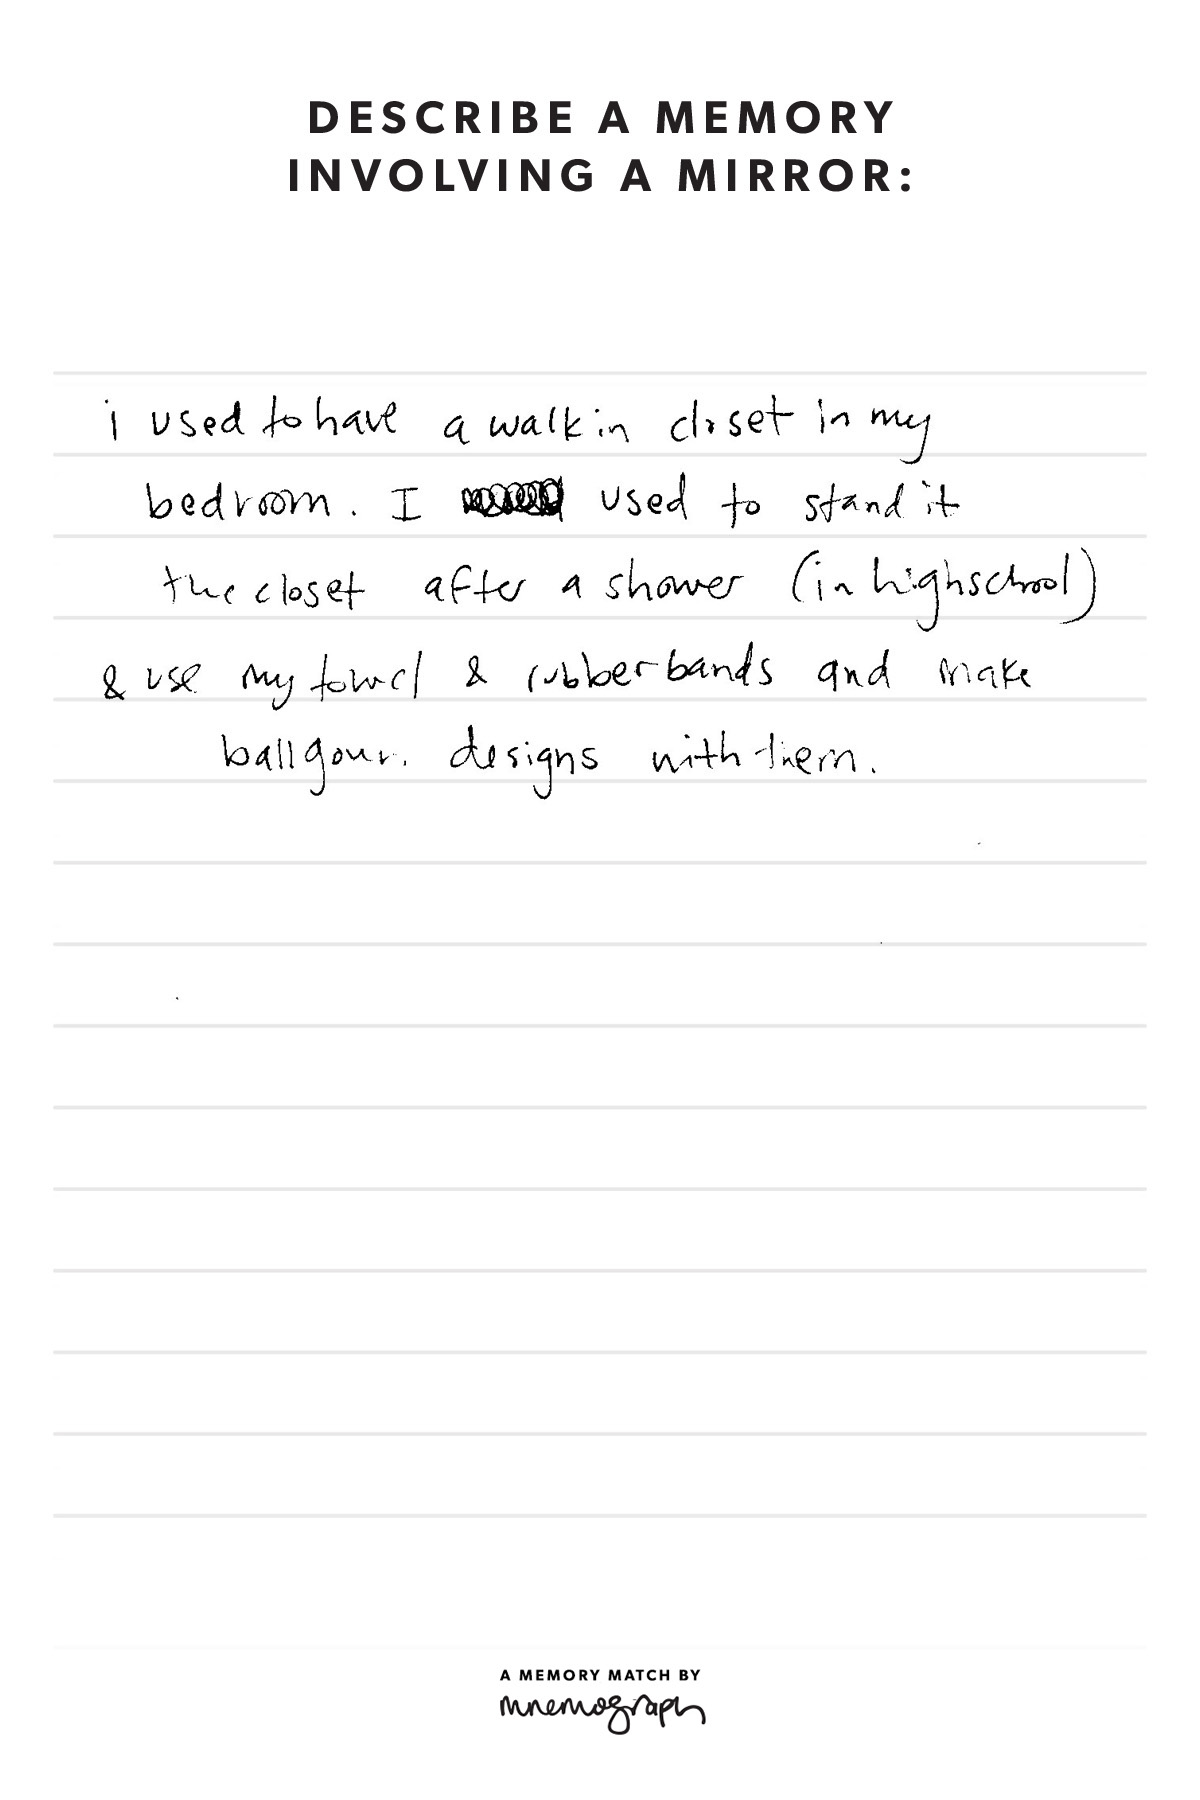 DESCRIBE A MEMORY
INVOLVING A MIRROR:
i used to have a walk in closet in my
bedroom. I used to stand it
the closet after a shower (in highschool)
& use my towel & rubber bands and make
ballgown designs with them.
A MEMORY MATCH BY
mnemograph